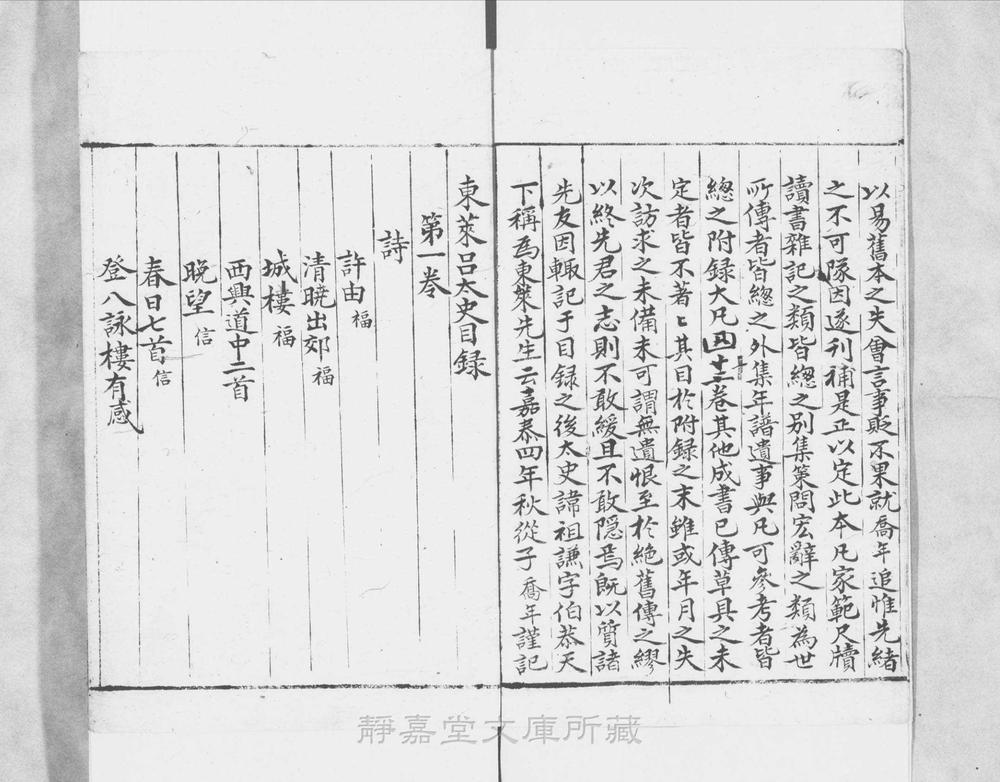 以易舊本之失會言事貶不果就喬年追惟先緒
之不可隊因遂刊補是正以定此本凡家範尺牘
讀書雜記之類皆總之別集策問宏辭之類為世
所傳者皆總之外集年譜遺事與凡可參考者皆
總之附録大凡四十二卷其他成書已傳草具之未
定者皆不著〻其目於附録之末雖或年月之失
次訪求之未備未可謂無遺恨至於絶舊傳之繆
以終先君之志則不敢緩且不敢隠焉既以質諸
先友因輙記于目録之後太史諱祖謙字伯恭天
下稱為東萊先生云嘉泰四年秋從子喬年謹記
東萊呂太史目録
第一卷
詩
許由 福
清曉出郊 福
城樓 福
西興道中二首
晩望 信
春日七首 信
登八詠樓有感
靜嘉堂文庫所藏